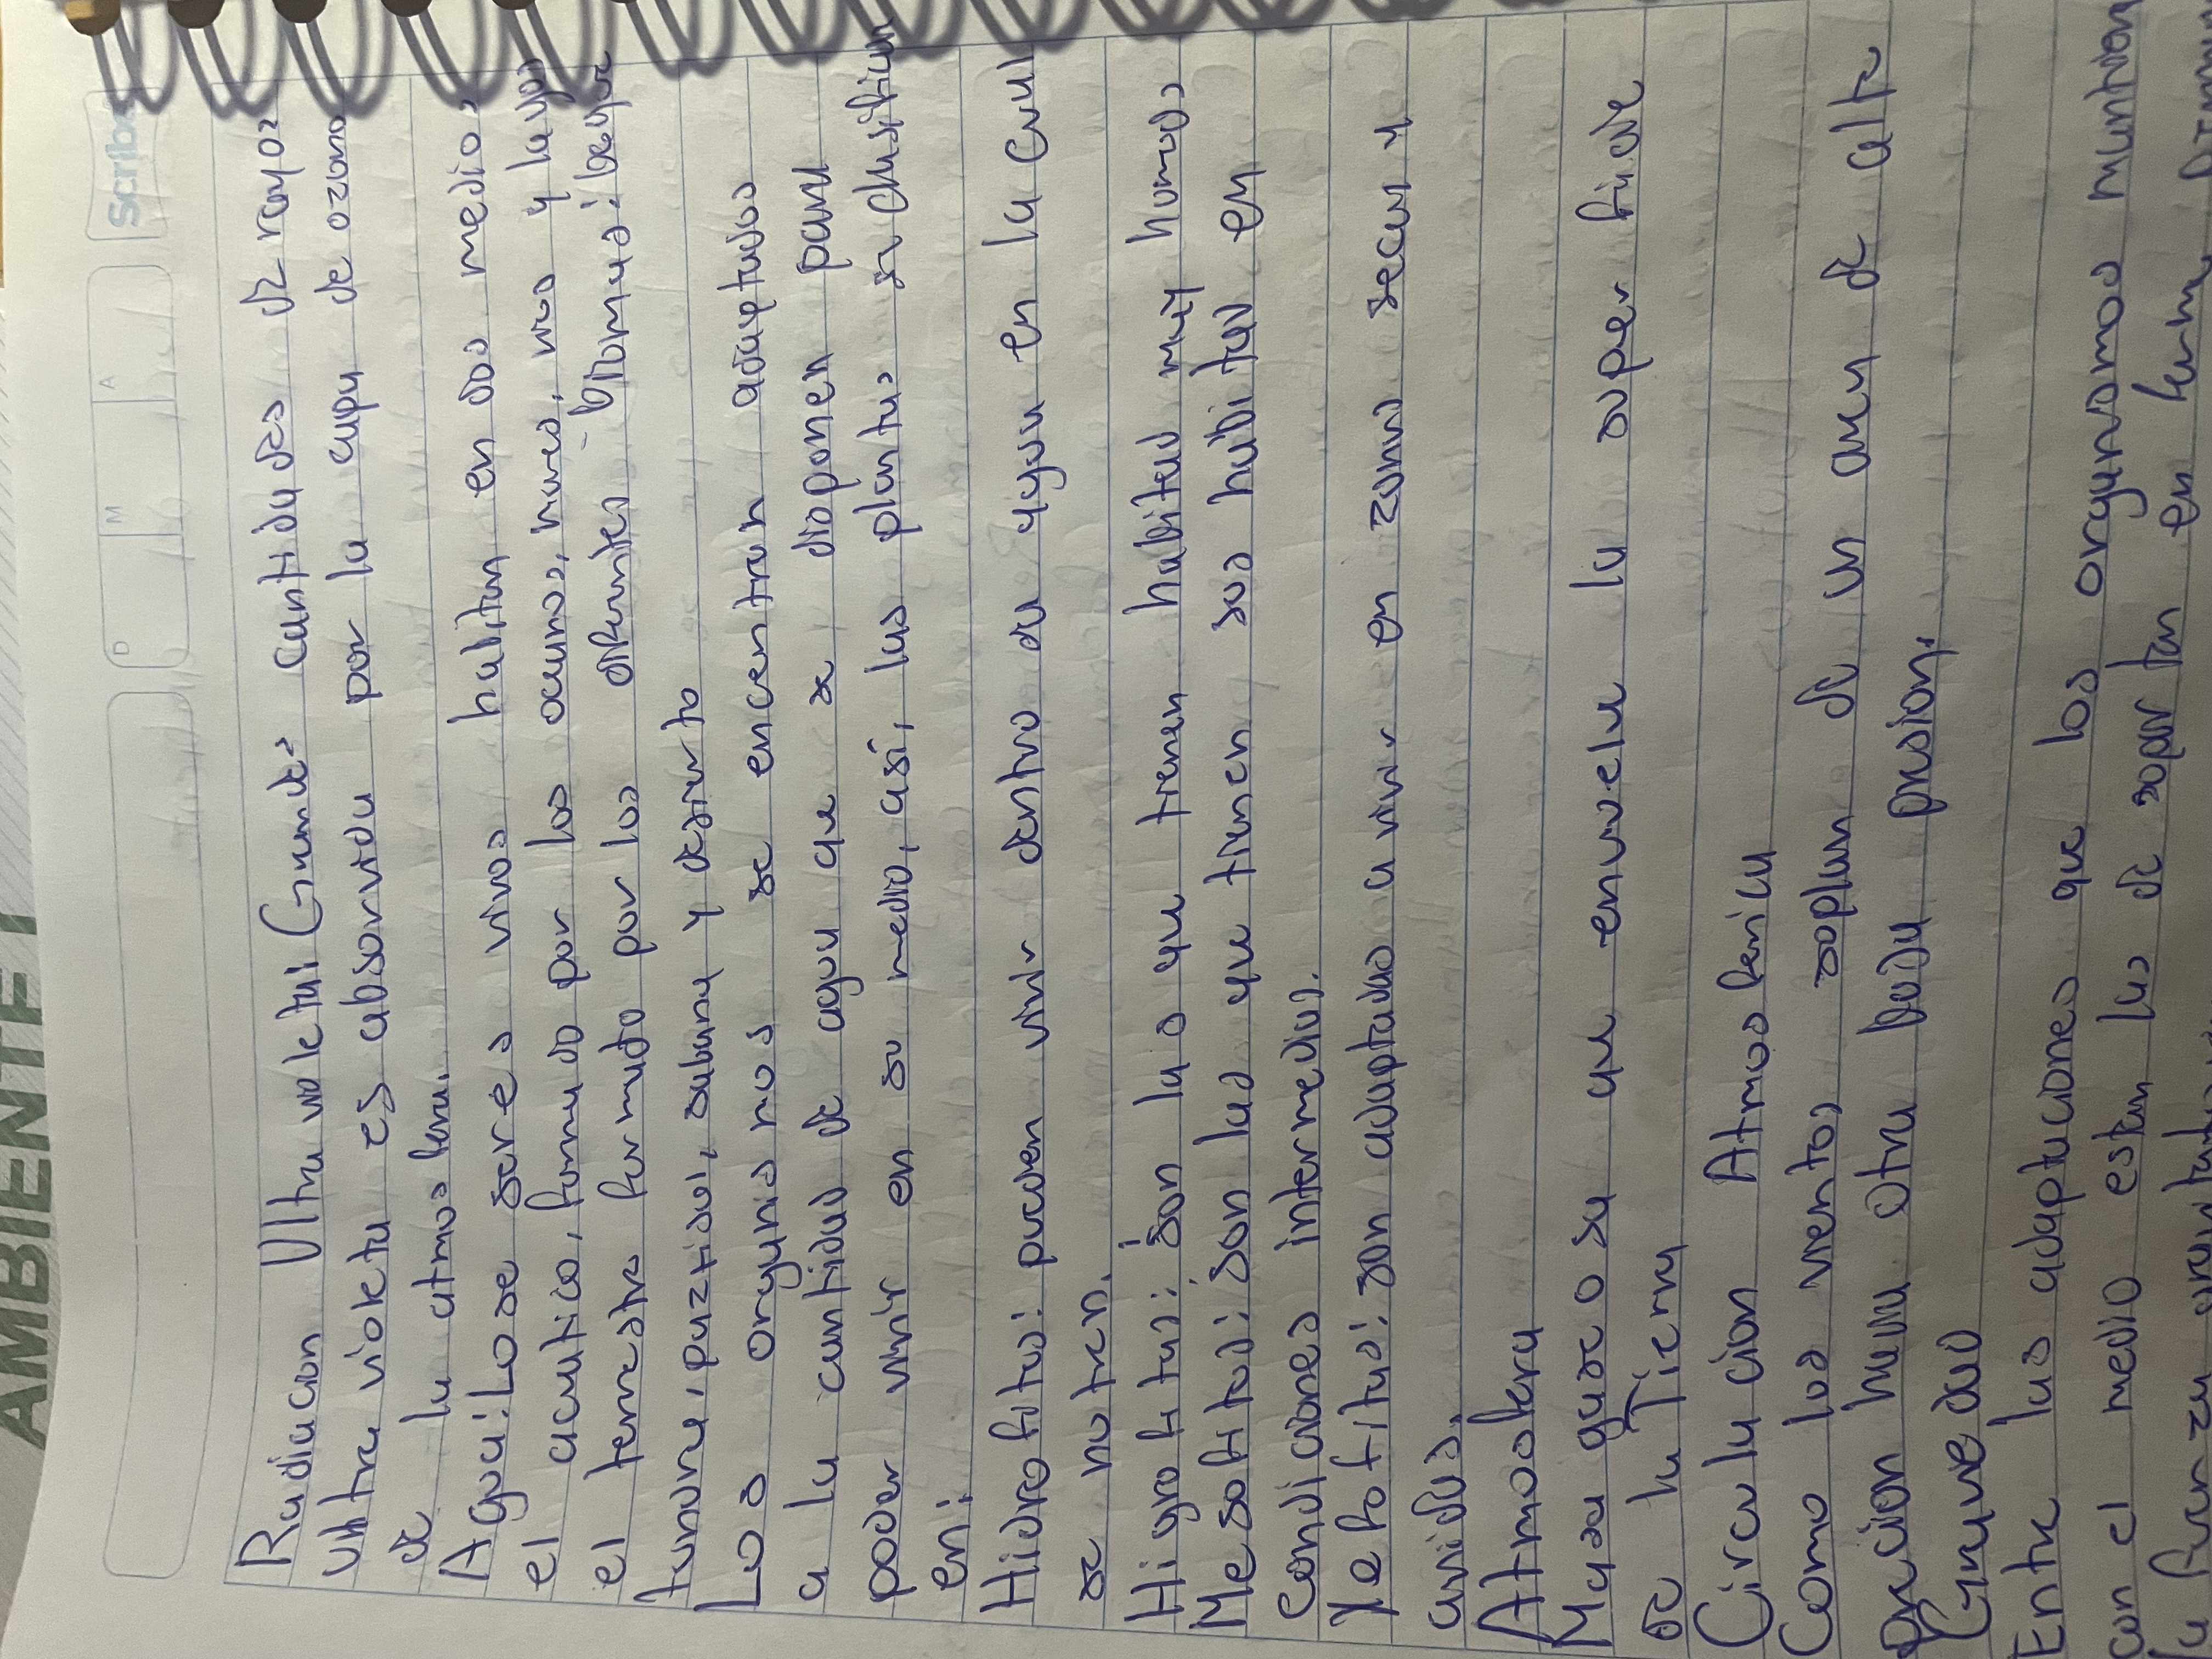 AMBIENTE Y
D M A
Scribe
Radiacion Ultra violetal Grandes cantidades de rayos
ultra violeta es absorvida por la capa de ozono
de la atmosfera.
Agua: Lose seres vivos habitan en dos medios
el acuatico, formado por los oceanos, mares, rios y lagos
el terrestre formado por los diferentes biomas: bosque
tundra, pazrizal, sabana y desierto
Los organismos se encentran adaptados
a la cantidad de agua que se disponen para
poder vivir en su medio, así, las plantas se clasifican
en:
Hidrofitas: pueden vivir dentro de agua en la cual
se notren.
Higrofitas: Son las que tienen habitad muy humodos
Mesofitas: Son las que tienen sus habitad en
condiciones intermedias.
Xefofitas: son adaptadas a vivir en zonas secas y
aridas.
Atmosfera
Masa gaseosa que envuelve la super ficie
de la Tierra
Circulacion Atmosferica
Como los vientos soplan de un area de alta
presion hacia otra baja presion.
Gravedad
Entre las adaptaciones que los organismos mantienen
con el medio estan las de soportan en forma
la fuerza